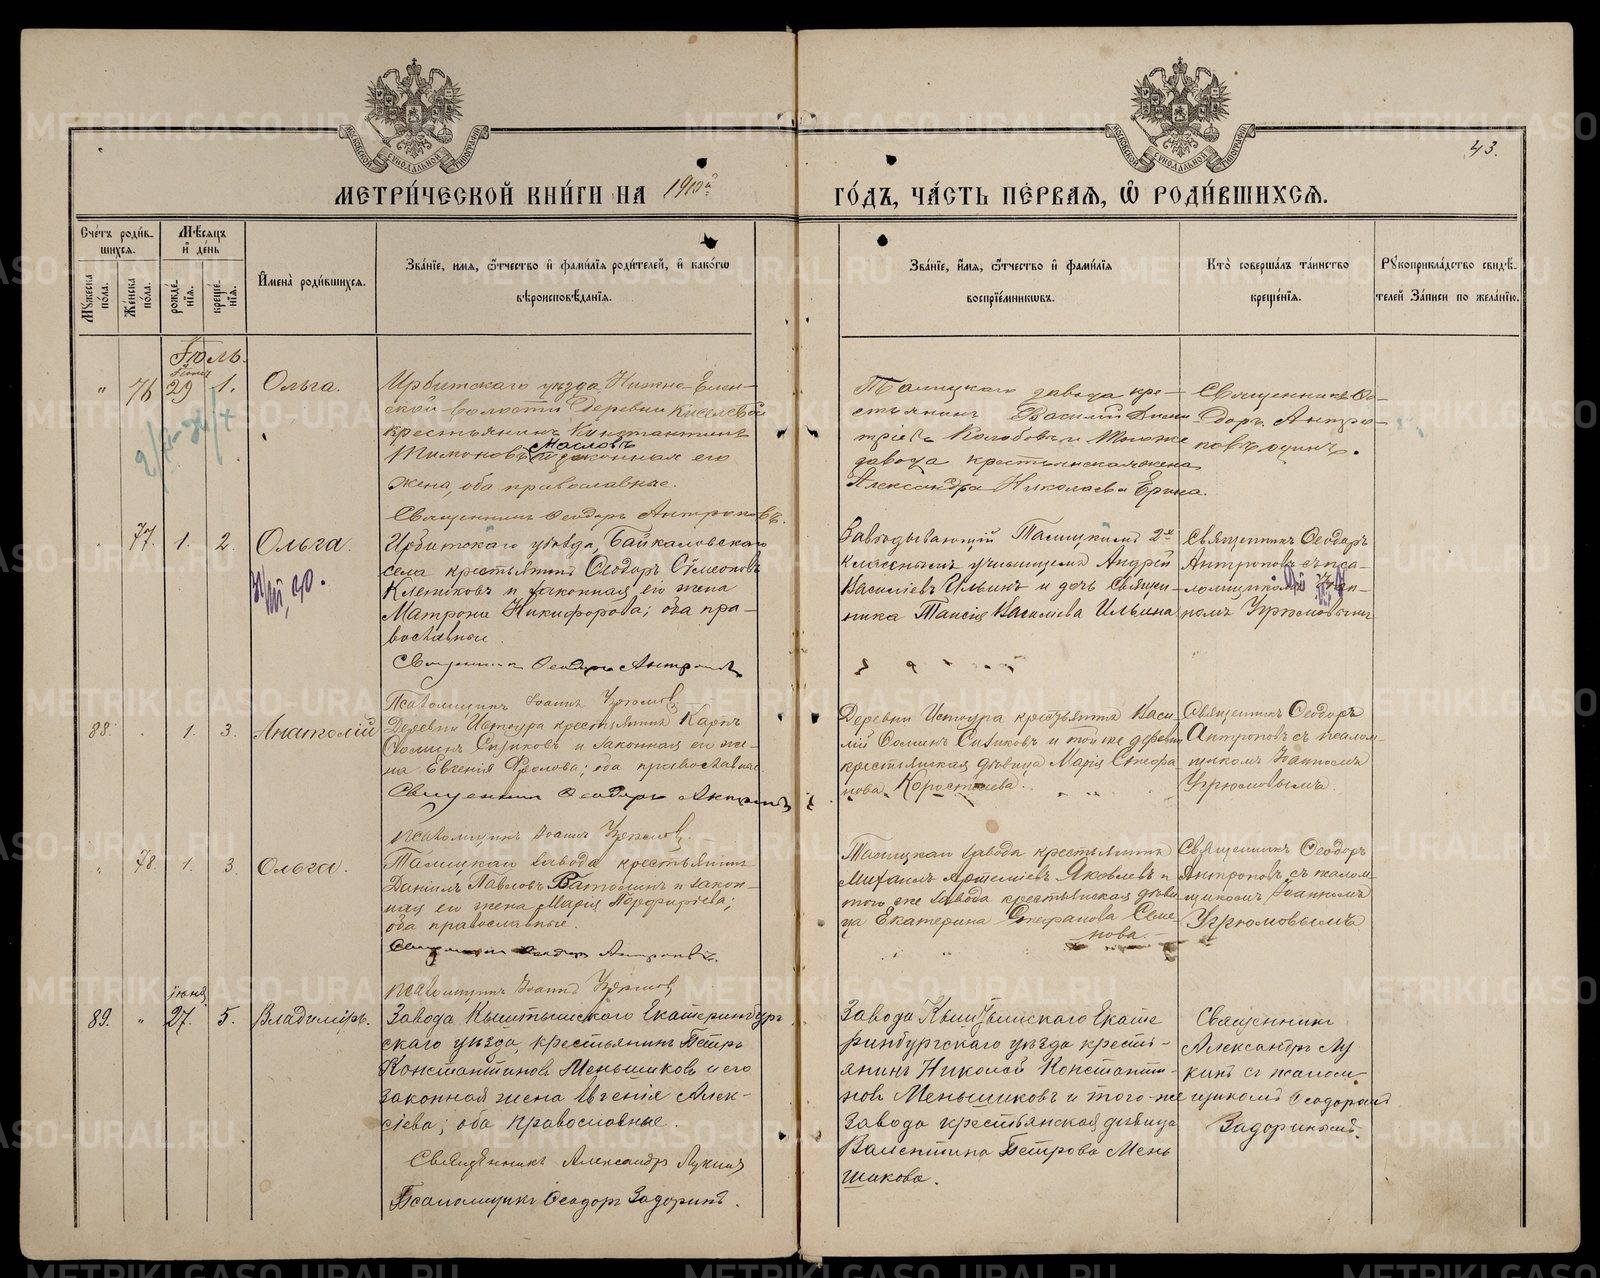 43.
МЕТРИ́ЧЕСКОЙ КНИ́ГИ НА 1910й
ГО́ДЪ, ЧА́СТЬ ПЕ́РВАЯ, Ѿ РОДИ́ВШИХСЯ.
Сче́тъ роди́в-
шихся.
Мꙋ́жеска по́ла.
Же́нска по́ла.
Мѣ́сяцъ и де́нь
рожде́нїя.
креще́нїя.
И́мена̀ роди́вшихся.
Зва́нїе, имя, ѻ́тчество и фами́лїя роди́телей, и како́гѡ
вѣроисповѣ́данїя.
Зва́нїе, и́мя, ѻ́тчество и фами́лїя
воспрїе́мникѡвъ.
Кто̀ соверша́лъ та́инство
креще́нїя.
Рꙋкоприкла́дство свидѣ́-
телей За́писи по жела́нїю.
Іюль.
" 76 29 1. Ольга.
Ирбитскаго уѣзда Нижне-Елан-
ской волости деревни Киселевой
крестьянинъ Константинъ
Тимоновъ Масловъ и законная его
жена, оба православные.
Священникъ Ѳеодоръ Антроповъ.
Талицкаго завода кре-
стьянинъ Василій Дими
тріевъ Колобовъ и тогоже
завода крестьянская жена
Александра Николаева Ерина.
Священникъ Ѳе-
одоръ Антро-
повъ одинъ.
77. 1. 2. Ольга.
Ирбитскаго уѣзда, Байкаловскаго
села крестьянинъ Ѳеодоръ Симеоновъ
Клепиковъ и законная его жена
Матрона Никифорова; оба пра-
вославные
Священникъ Ѳеодоръ Антроповъ
Псаломщикъ Іоаннъ Угрюмовъ
Завѣдывающій Талицкимъ 2-х
класснымъ училищемъ Андрей
Василіевъ Ильинъ и дочь священ-
ника Таисія Василіева Ильина
Священникъ Ѳеодоръ
Антроповъ съ пса-
ломщикомъ Іоан-
номъ Угрюмовымъ
88. 1. 3. Анатолій
Деревни Истоура крестьянинъ Карпъ
Ѳоминъ Сизиковъ и законная его же-
на Евгенія Фролова; оба православные
Священникъ Ѳеодоръ Антроповъ
псаломщикъ Іоаннъ Угрюмовъ.
Деревни Истоура крестьянинъ Васи-
лій Ѳоминъ Сизиковъ и той же деревни
крестьянская дѣвица Марія Стефа
нова Коростелева.
Священникъ Ѳеодоръ
Антроповъ съ псалом-
щикомъ Іоанномъ
Угрюмовымъ.
" 78. 1. 3. Ольга.
Талицкаго завода крестьянинъ
Даніилъ Павловъ Ватолинъ и закон-
ная его жена Марія Порфиріева;
оба православные.
Священникъ Ѳеодоръ Антроповъ.
псаломщикъ Іоаннъ Угрюмовъ
Талицкаго завода крестьянинъ
Михаилъ Артеміевъ Яковлевъ и
того же завода крестьянская дѣви
ца Екатерина Стефанова Семе
нова.
Священникъ Ѳеодоръ
Антроповъ съ псалом-
щикомъ Іоанномъ
Угрюмовымъ
іюня
89. " 27. 5. Владиміръ.
Завода Кыштымскаго Екатеринбург
скаго уѣзда, крестьянинъ Петръ
Константиновъ Меньшиковъ и его
законная жена Евгенія Алек-
сіева; оба православные.
Священникъ Александръ Лукинъ
Псаломщикъ Ѳеодоръ Задоринъ.
Завода Кыштымскаго Екате
ринбургскаго уѣзда кресть-
янинъ Николай Константи-
новъ Меньшиковъ и того-же
завода крестьянская дѣвица
Валентина Петрова Мень
шикова.
Священникъ
Александръ Лу
кинъ съ псалом-
щикомъ Ѳеодоромъ
Задоринымъ.
METRIKI.GASO-URAL.RU